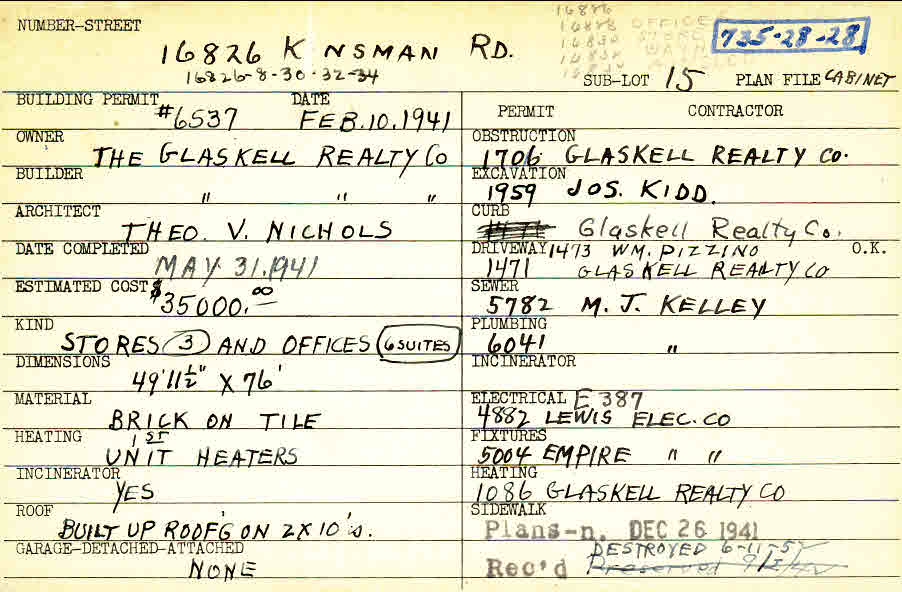 NUMBER-STREET
16826 K NSMAN RD.
16826-8-30-32-34
735-28-28
SUB-LOT 15 PLAN FILE CABINET
BUILDING PERMIT DATE
#6537 FEB.10.1941
OWNER
THE GLASKELL REALTY Co
BUILDER
" " "
ARCHITECT
THEO. V. NICHOLS
DATE COMPLETED
MAY 31.1941
ESTIMATED COST $
35000.00
KIND
STORES 3 AND OFFICES 6 SUITES
DIMENSIONS
49'11½" X 76'
MATERIAL
BRICK ON TILE
HEATING 1ST
UNIT HEATERS
INCINERATOR
YES
ROOF
BUILT UP ROOF'G ON 2X10's.
GARAGE-DETACHED-ATTACHED
NONE
PERMIT CONTRACTOR
OBSTRUCTION
1706 GLASKELL REALTY Co.
EXCAVATION
1959 JOS. KIDD.
CURB
Glaskell Realty Co.
DRIVEWAY 1473 WM. PIZZINO O.K.
1471 GLASKELL REALTY CO
SEWER
5782 M. J. KELLEY
PLUMBING
6041 "
INCINERATOR
ELECTRICAL E 387
4882 LEWIS ELEC. CO
FIXTURES
5004 EMPIRE " "
HEATING
1086 GLASKELL REALTY CO
SIDEWALK
Plans-n. DEC 26 1941
DESTROYED 6-11-57
Rec'd Preserved